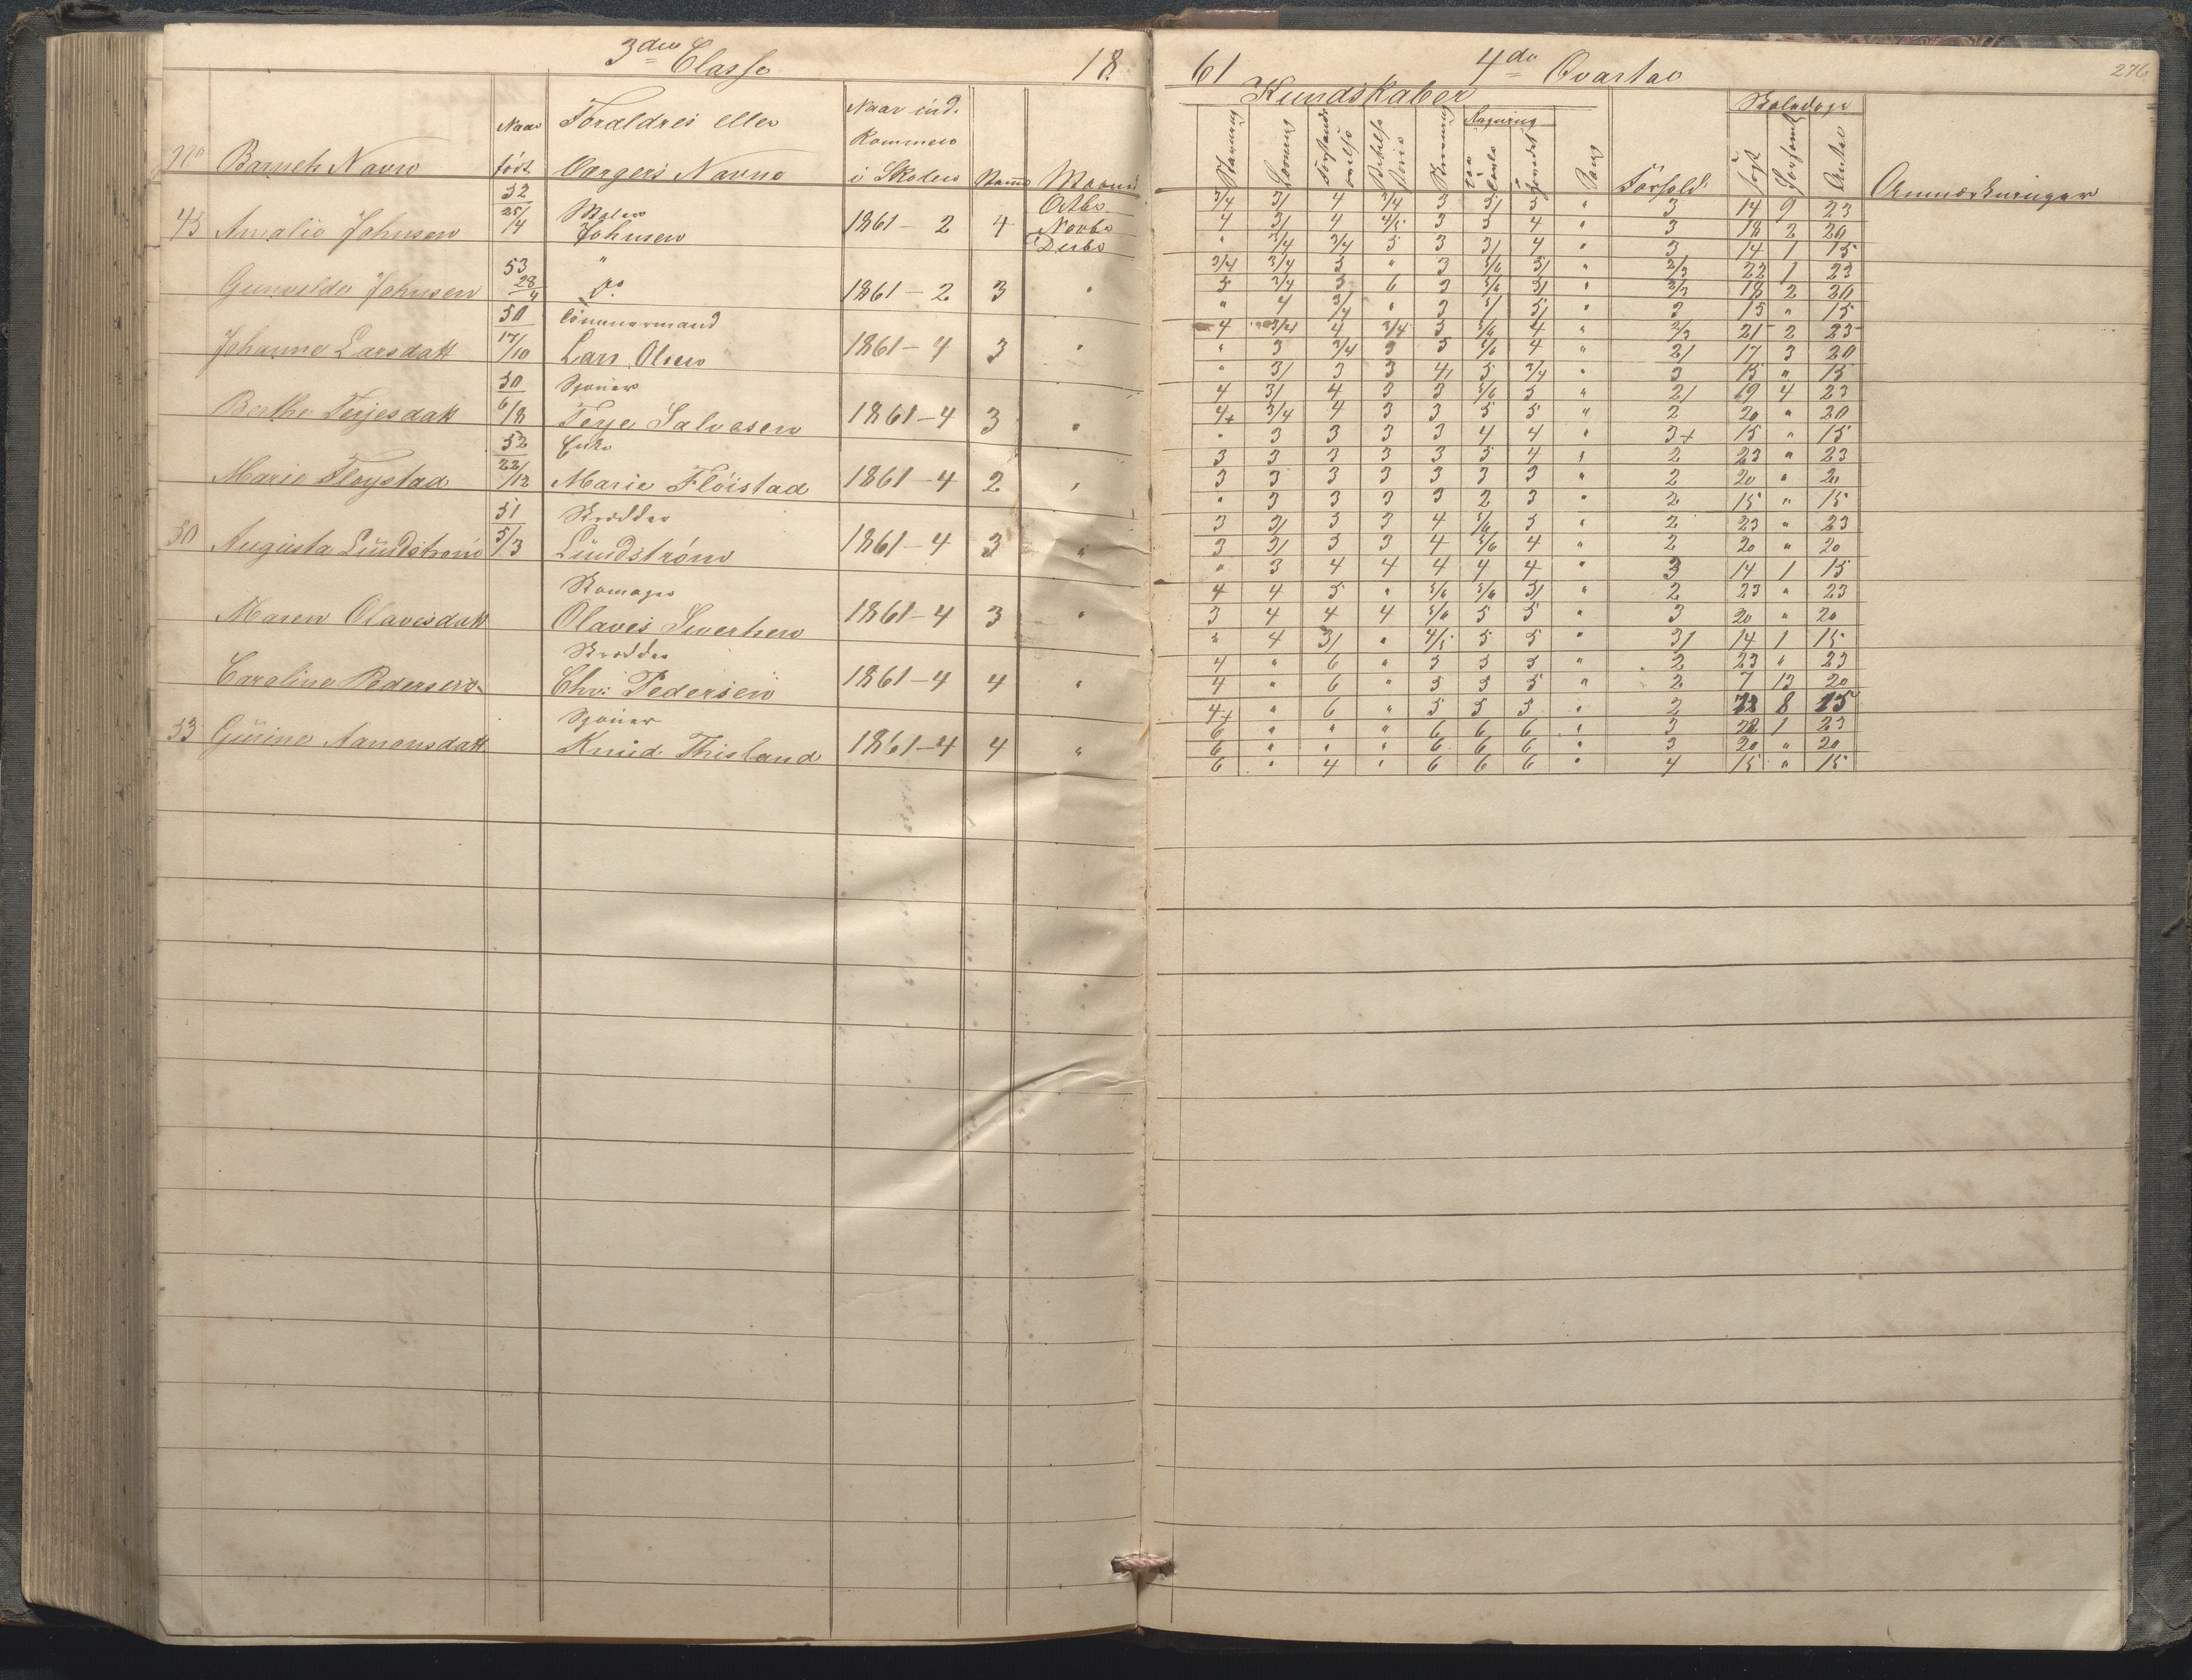 3die Classe 18 61 4de Qvartal 276
Kundskaber Skoledage
Barnets Navn Naar født Foraldres eller Værgers Navne Naar ind. Kommen i Skolen Maaned Stavning Læsning Forstands øvelse Bibelhistorie Skrivning Regning Sang Forhold Søgt Forsømt Antal Anmærkninger
45 Amalie Johnsen 52 25/4 Johnsen 1861 - 2 4 Octbr 3/4 3/ 4 3/4 3 5/ 5 " 3 14 9 23
Novbr 4 3/ 4 4/5 3 5 4 " 3 18 2 20
Decbr " 3/4 3/4 5 3 3/ 4 " 3 14 1 15
Gunvilda Johnsen 53 28/4 " Do 1861 - 2 3 " 3/4 3/4 5 " 3 5/6 5/ " 2/3 22 1 23
5 3/4 5 6 3 5/6 5/ " 2/3 18 2 20
" 4 3/4 " 3 5/ 5/ " 3 15 " 15
Johanne Larsdatt 50 17/10 Tömmermand Lars Olsen 1861 - 4 3 " 4 3/4 4 3/4 5 5/6 4 " 2/3 21 2 23
" 3 3/4 3 5 5/6 4 " 2/ 17 3 20
" 3/ 3 3 4/ 5 3/4 " 3 15 " 15
Berthe Terjesdatt 50 6/8 Terje Salvesen 1861 - 4 3 " 4 3/ 4 3 3 5/6 5 " 2/ 19 4 23
4+ 3/4 4 3 3 5 5 " 2 20 " 20
" 3 3 3 3 4 4 " 3+ 15 " 15
Marie Fløystad 52 22/12 Enke Marie Flöistad 1861 - 4 2 " 3 3 3 3 3 5 4 " 2 23 " 23
3 3 3 3 3 3 3 " 2 20 " 20
" 3 3 3 3 2 3 " 2 15 " 15
50 Augusta Lündstrøm 51 5/3 Skrædder Lündström 1861 - 4 3 " 3 3/ 5 3 4 5/6 5 " 2 23 " 23
3 3/ 5 3 4 5/6 4 " 2 20 " 20
" 3 4 4 4 4 4 " 3 14 1 15
Maren Olavesdatt Skomager Olaves 1861 - 4 3 " 4 4 5 " 5/6 5/6 5/ " 2 23 " 23
3 4 4 4 5/6 5 5 " 3 20 " 20
" 4 3/ " 4/5 5 5 " 3/ 14 1 15
Caroline Pedersen Skrædder Chr. Pedersen 1861 - 4 4 " 4 " 6 " 5 5 5 " 2 23 " 23
4 " 6 " 5 5 5 " 2 7 13 20
4+ " 6 " 5 5 5 " 2 8 15
53 Gurine Aanensdatt Knud Thisland 1861 - 4 4 " 6 " " " 6 6 6 " 3 22 1 23
6 " " " 6 6 6 " 3 20 " 20
6 " 4 " 6 6 6 " 4 15 " 15